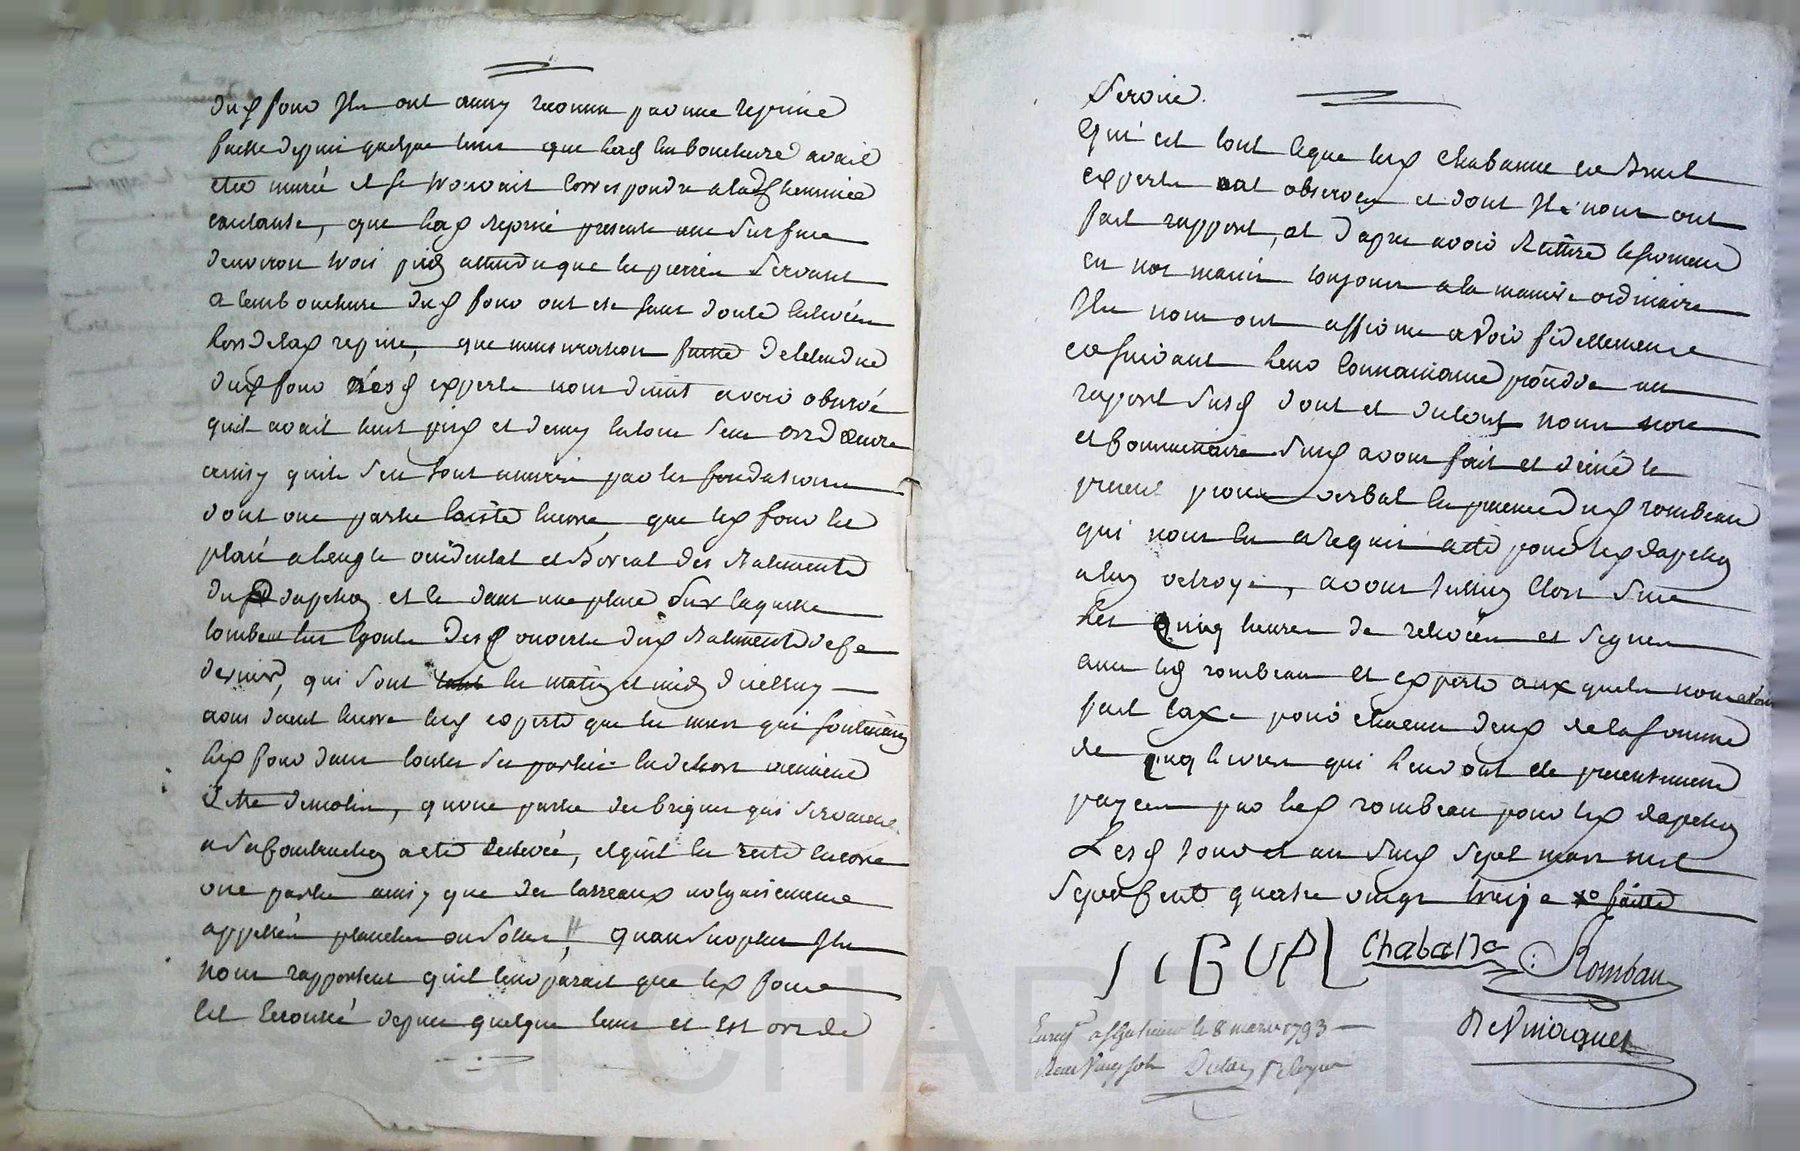 dud four Ils ont aussy reconnu par une reprise
faitte depuis quelque tems que lad embouchure avait
été murée et se trouvait correspondre a lad cheminée
existante, que lad reprise presente une surface
denviron trois pieds attendu que les pierres servant
a lembouchure dud four ont été sans doute enlevées
lors de lad reprise, que mensuration faitte de letendue
dud four lesd experts nous disent avoir observé
quil avait huit pieds et demy en tous sens ors dœuvre
ainsy quils sen sont assurés par les fondations
dont une partie existe encore, que led four est
placé a langle occidental et Boreal des Batiments
dud dapchon et dans une place sur laquelle
tombent les egouts des couverts dud Batiment de ce
dernier, qui sont au matin et midy dicelluy
nous disent encore lesd experts que les murs qui soutenaient
led four dans toutes ses parties en dehors viennent
detre demolis, quune partie des briques qui servaient
a sa construction a été enlevée, et quil en reste encore
une partie ainsy que des carreaux vulgairement
appellés planches ou solles, quau surplus Ils
nous rapportent quil leur parait que led four
est ecroulé depuis quelque tems et est ors de
Service.
Qui est tout ceque lesd chabanne et Brut
experts ont observés et dont Ils nous ont
fait rapport, et dapres avoir Reitéré le serment
en nos mains toujours a la maniere ordinaire
Ils nous ont affirmé avoir fidellement
et suivant leur connaissance procédé au
rapport susd dont et dutout nous
et commissaire susd avons fait et dréssé le
present procès verbal en presence dud rombeau
qui nous en a requis acte pour led dapchon
a luy octroyé, avons icelluy clos sur
les cinq heures de relevée et signés
avec led rombeau et experts aux quels nous avons
fait taxe pour chacun deux de la somme
de cinq livres qui leur ont été presentement
payées par led rombeau pour led dapchon
Lesd jour et an susd sept mars mil
sept cent quatre vingt treize
Chabana
Rombau
le 8 mars 1793